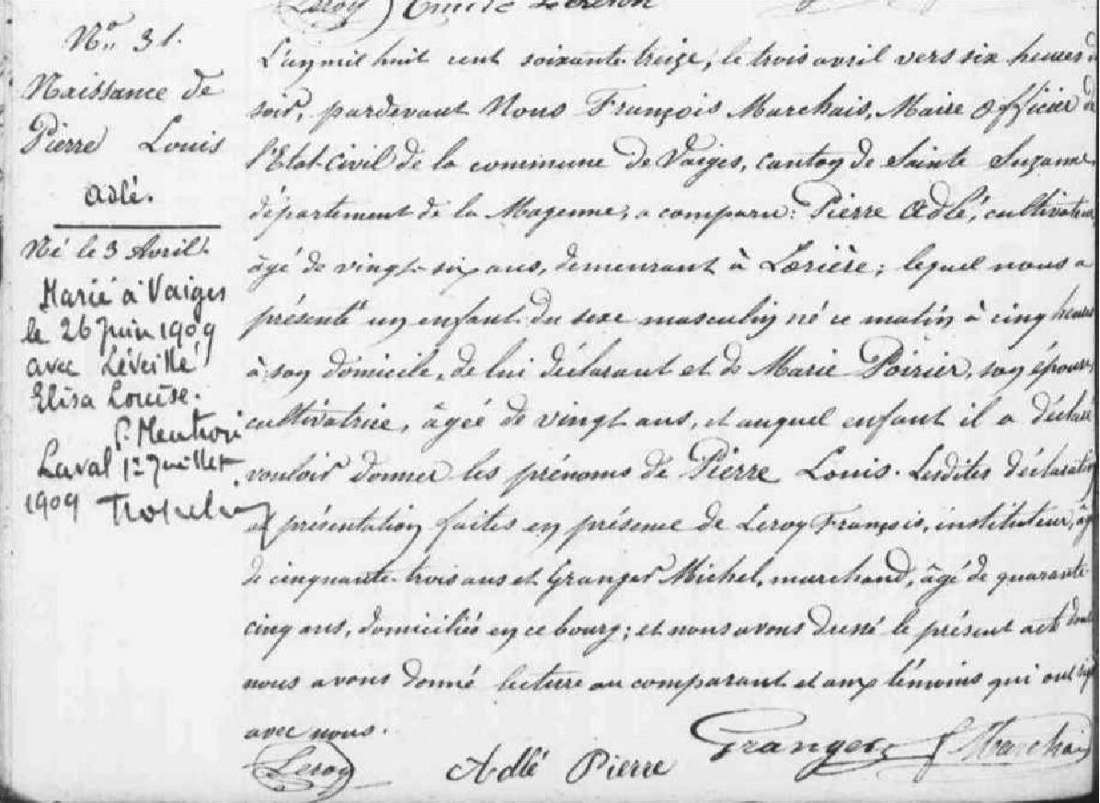 Leroy Emile
N° 31.
Naissance de
Pierre Louis
Adlé.
Né le 3 Avril.
Marié à Vaiges
le 26 Juin 1909
avec Léveillé
Elisa Louise.
P. Mention
Laval 1er Juillet
1909
L'an mil huit cent soixante-treize, le trois avril vers six heures du
soir, pardevant Nous François Marchais, Maire Officier de
l'Etat-Civil de la commune de Vaiges, canton de Sainte Suzanne,
département de la Mayenne, a comparu: Pierre Adlé, cultivateur,
âgé de vingt-six ans, demeurant à Lorière; lequel nous a
présenté un enfant du sexe masculin né ce matin à cinq heures
à son domicile, de lui déclarant et de Marie Poirier, son épouse,
cultivatrice, âgée de vingt ans, et auquel enfant il a déclaré
vouloir donner les prénoms de Pierre Louis. Lesdites déclaration
et présentation faites en présence de Leroy François, instituteur, âgé
de cinquante-trois ans et Granger Michel, marchand, âgé de quarante
cinq ans, domiciliés en ce bourg; et nous avons dressé le présent acte dont
nous avons donné lecture au comparant et aux témoins qui ont signé
avec nous.
Leroy Adlé Pierre Granger F Marchais